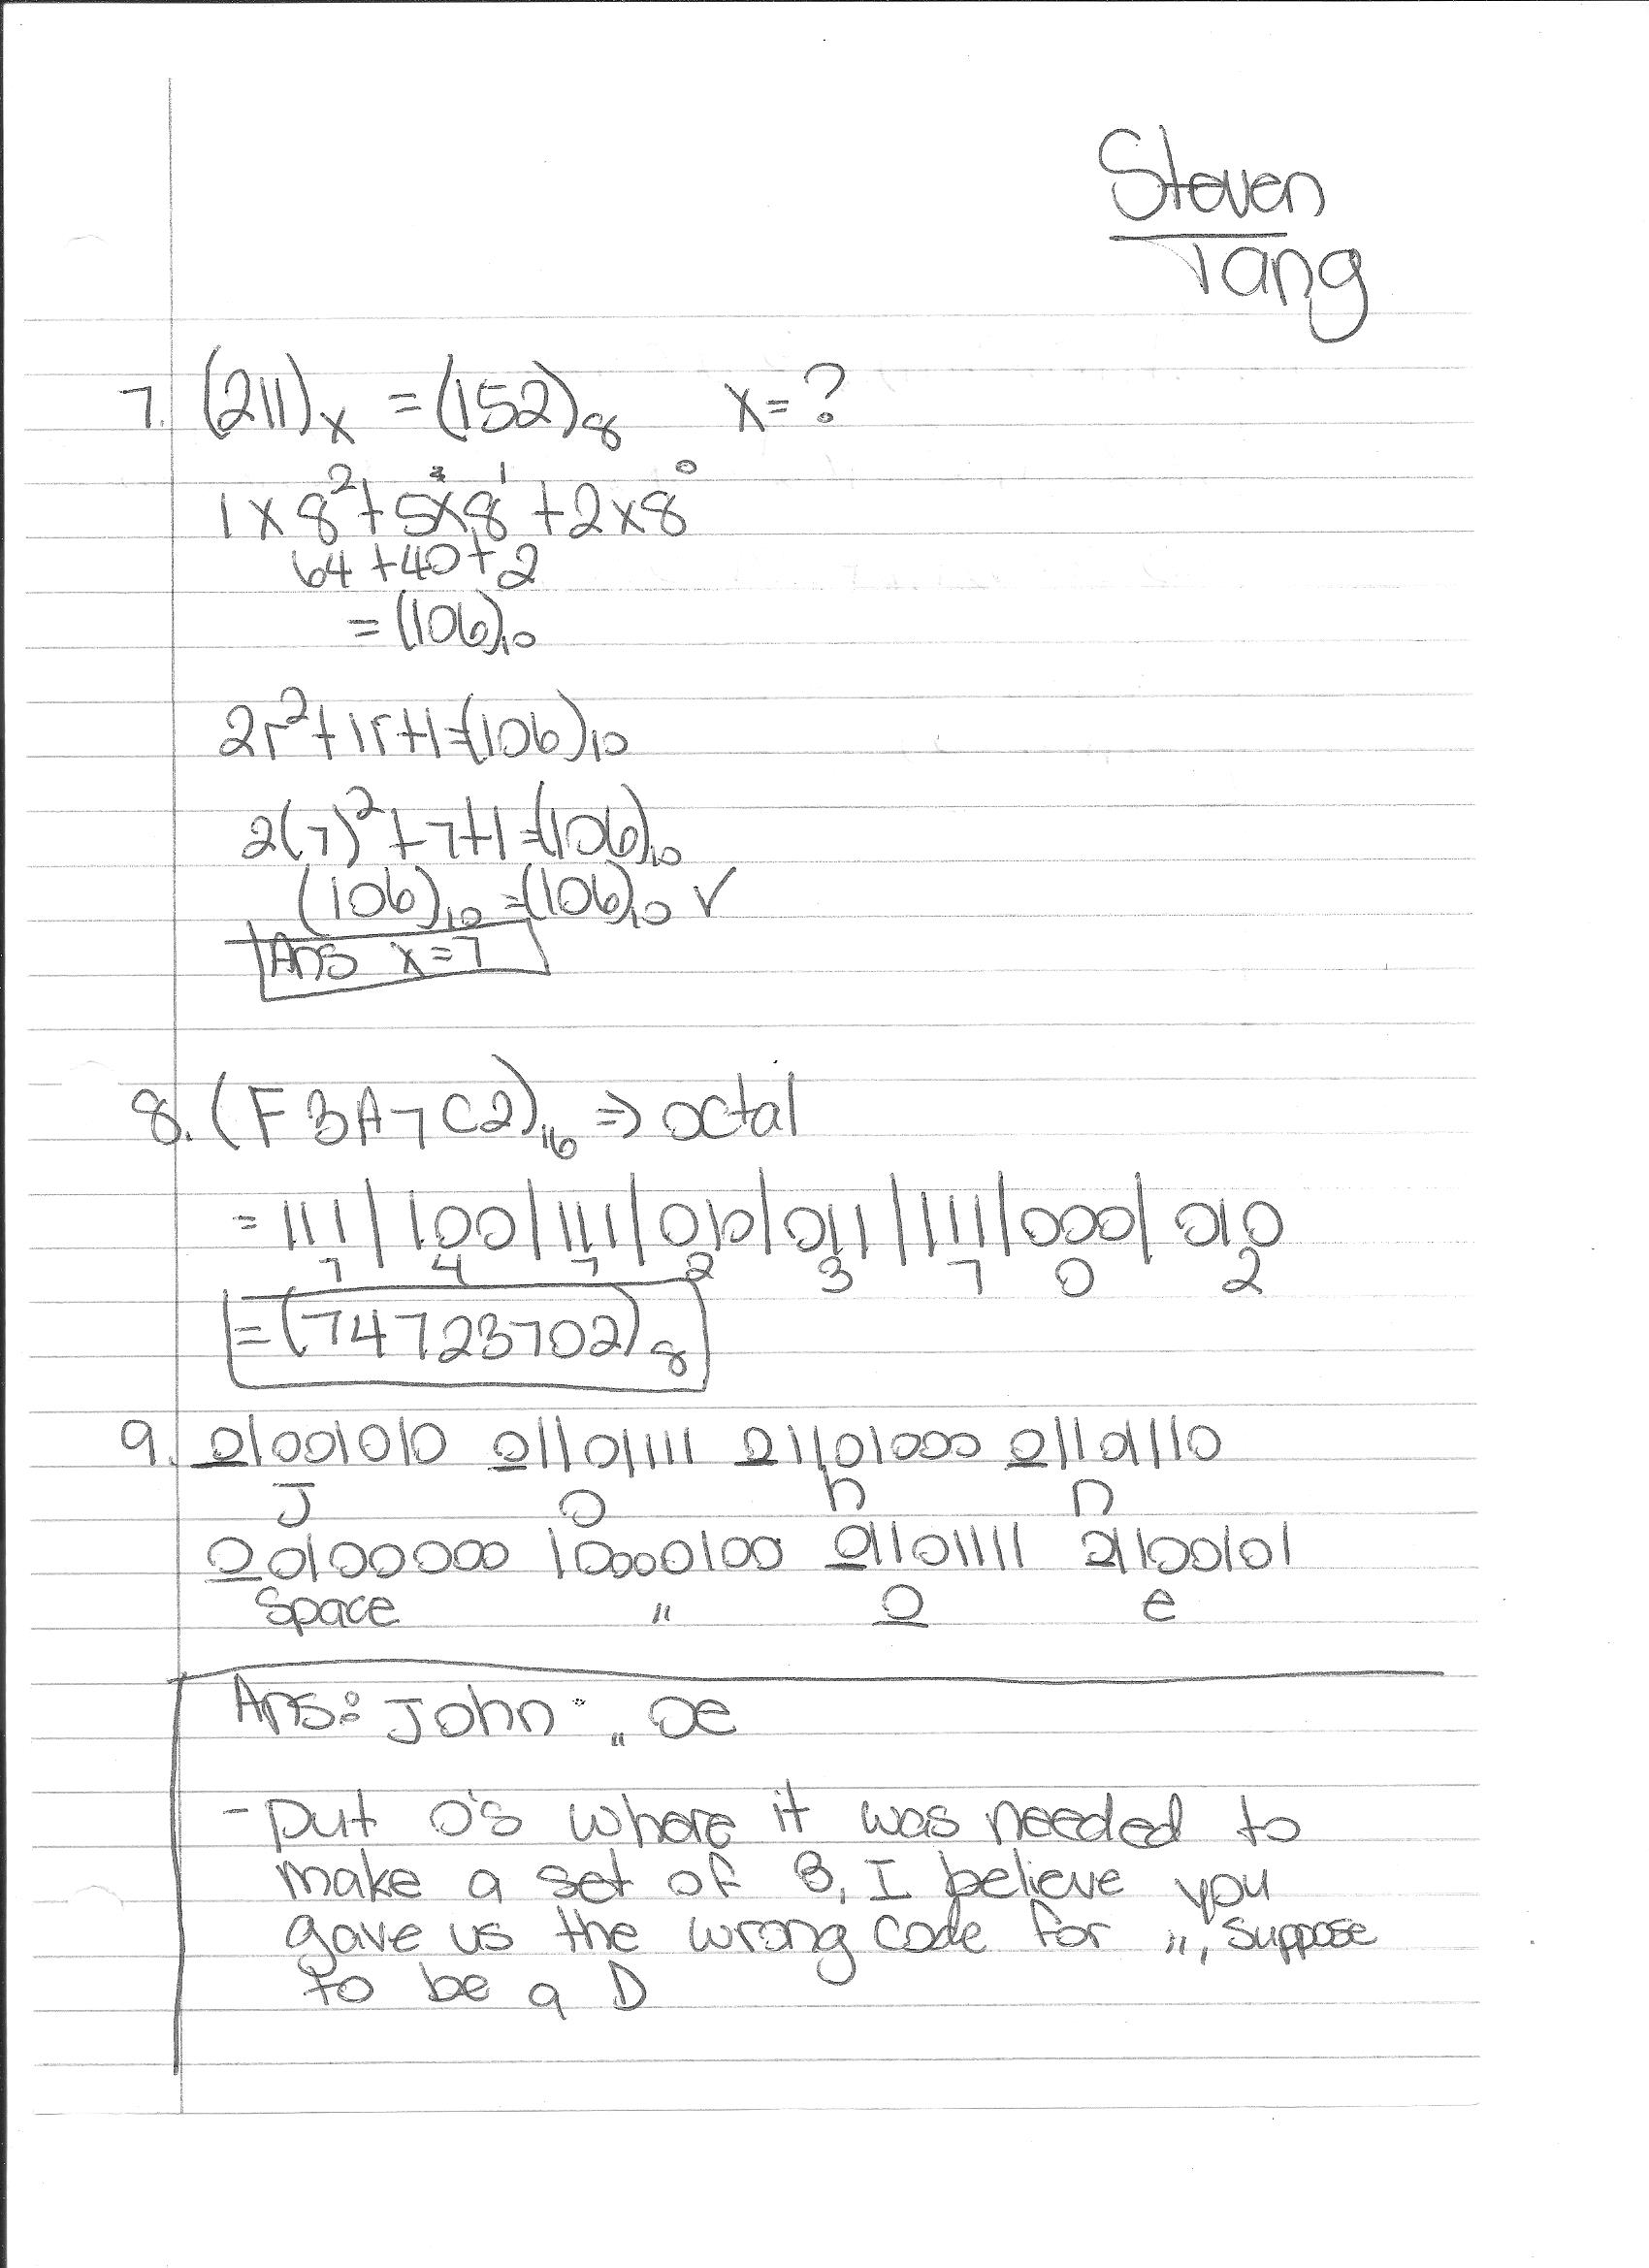 Steven
Tang
7. (211)x = (152)8 x=?
1 x 8² + 5x8¹ + 2x8⁰
64 + 40 + 2
= (106)10
2r² + 1r + 1 = (106)10
2(7)² + 7 + 1 = (106)10
(106)10 = (106)10 ✓
Ans x = 7
8. (F3A7C2)16 ⇒ octal
= 111 | 100 | 111 | 010 | 011 | 111 | 000 | 010
7 4 7 2 3 7 0 2
= (74723702)8
9. 01001010 01101111 01101000 01101110
J o h n
00100000 10000100 01101111 01100101
Space „ o e
Ans: John „ oe
- put 0's where it was needed to
make a set of 8, I believe you
gave us the wrong code for „, suppose
to be a D